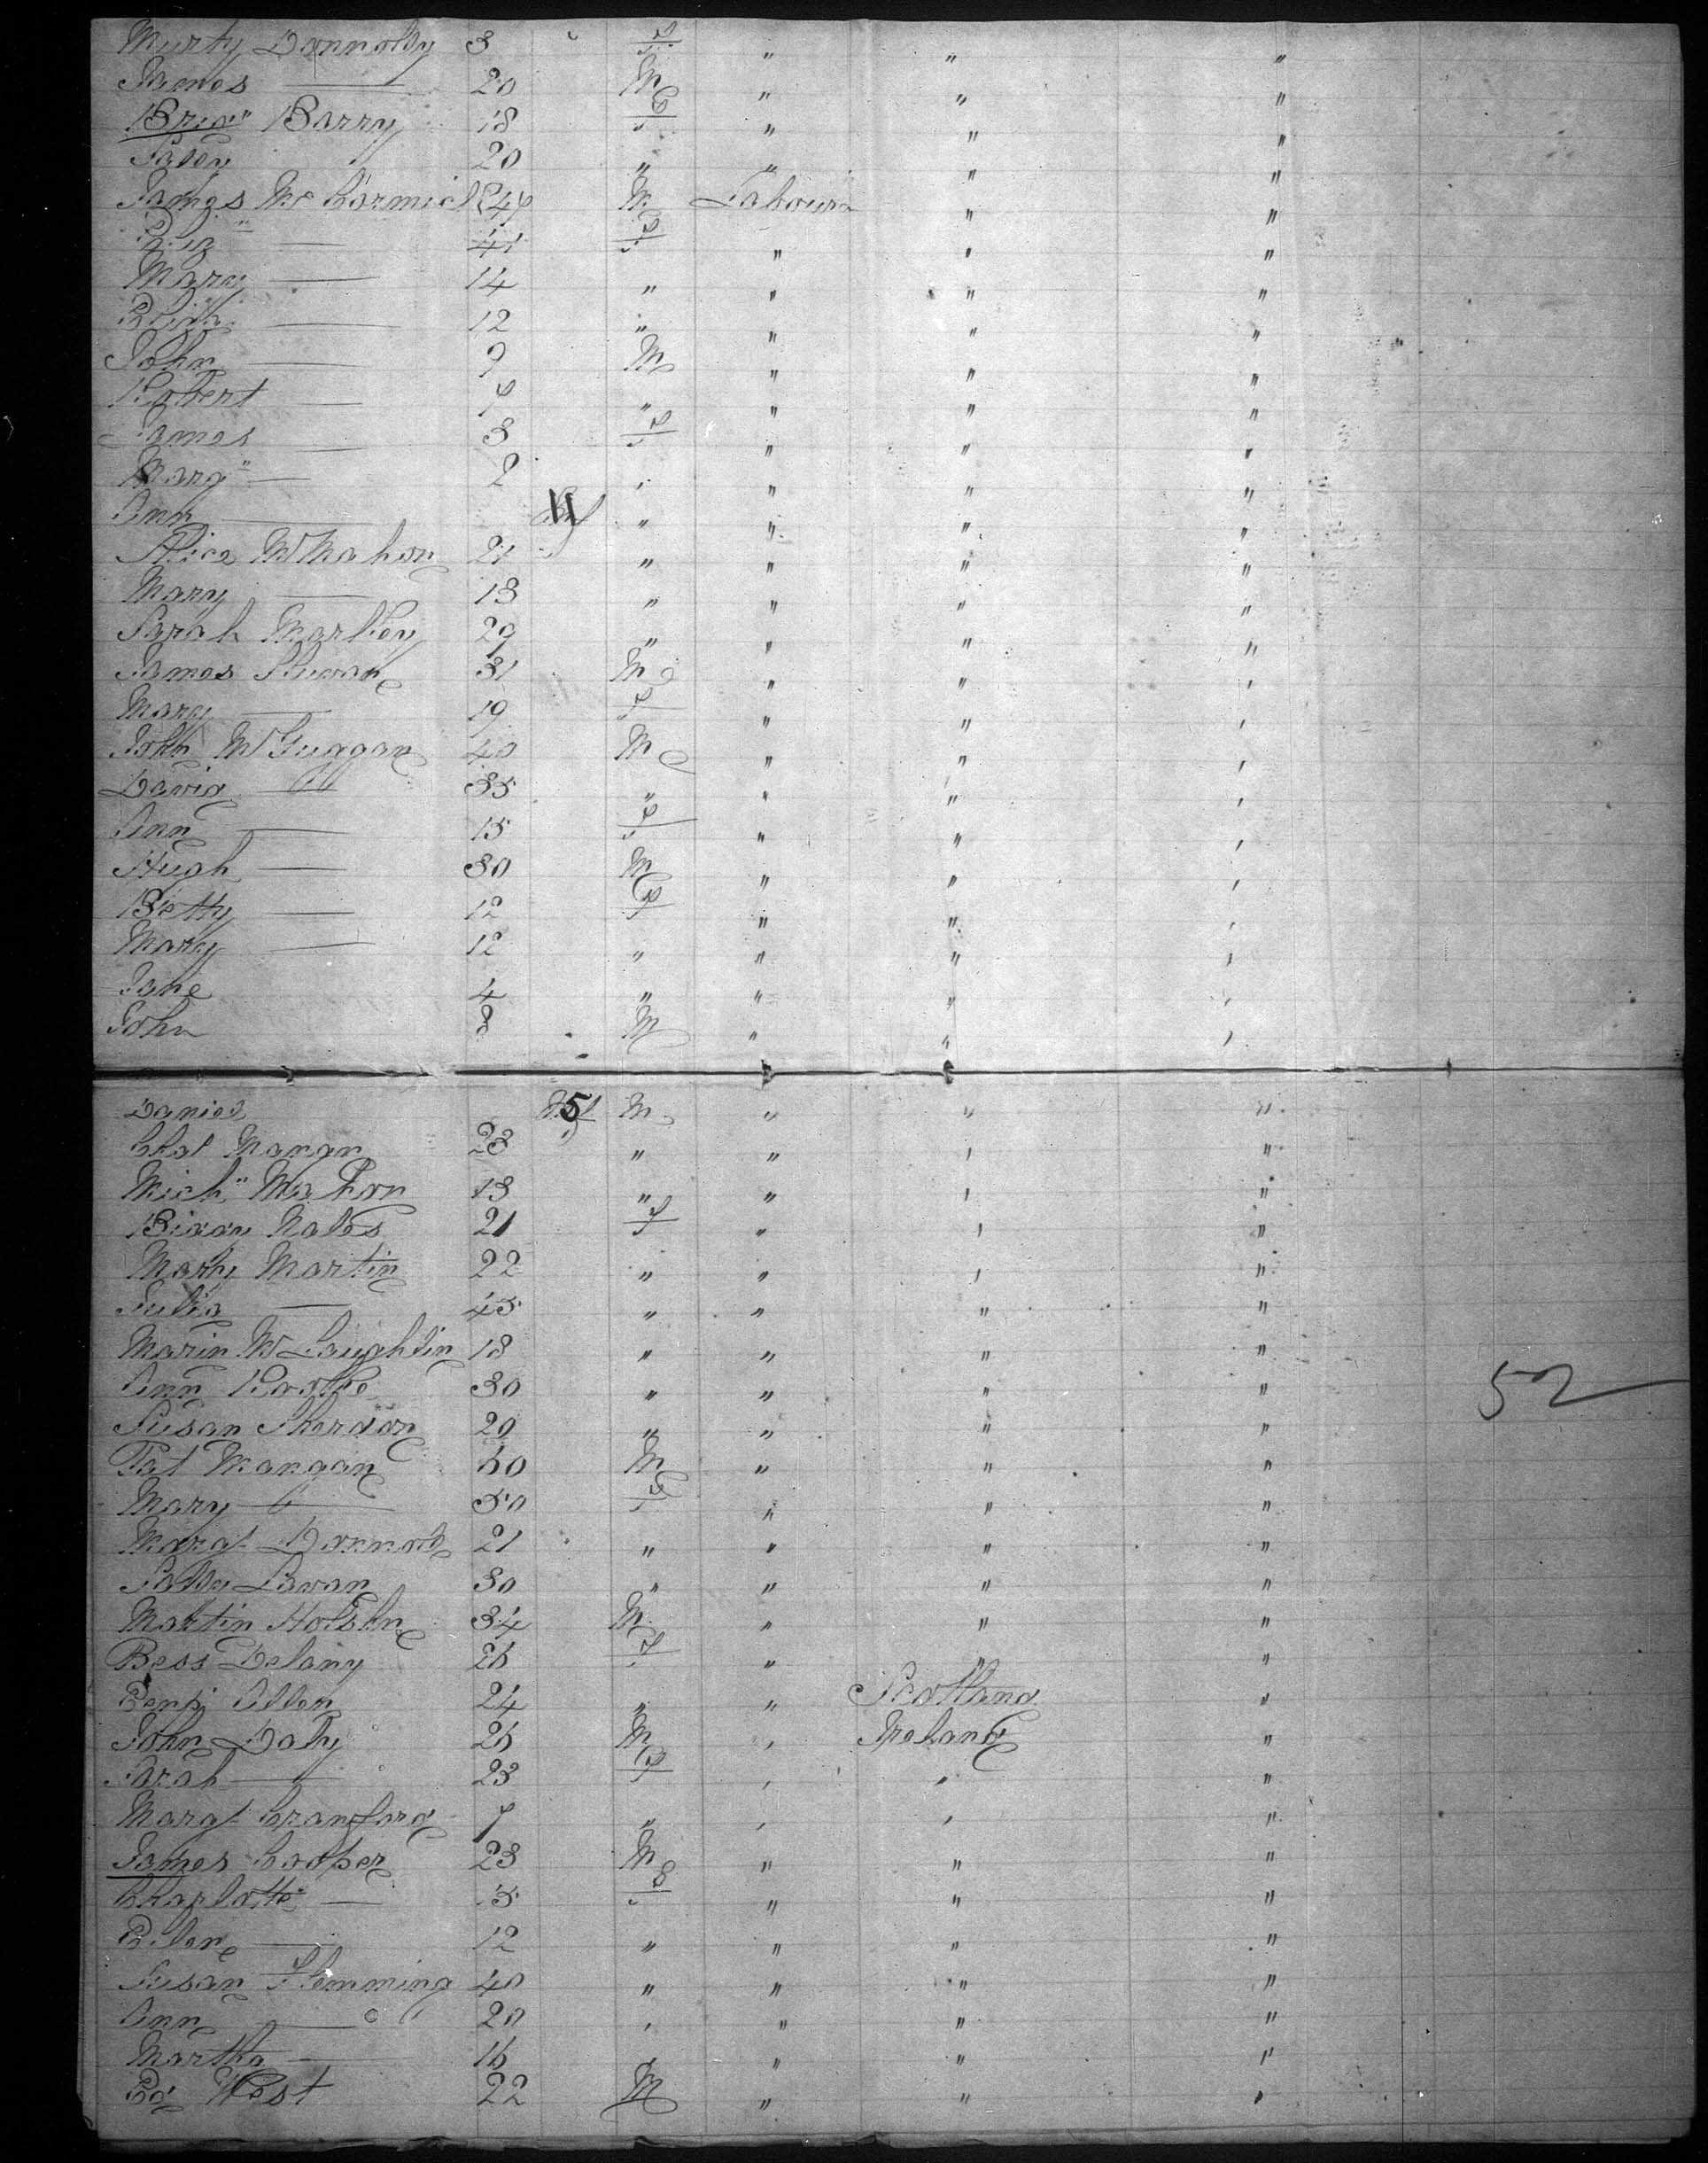 Murty Donnolly 3 F " " "
James — 20 M " " "
Bridt Barry 18 F " " "
Patsy 20 " " " "
James McCormick 44 M Labour " "
Eliz" — 41 F " " "
Mary — 14 " " " "
— 12 " " " "
John — 9 M " " "
Robert — 7 " " " "
James — 3 F " " "
Marg" — 2 " " " "
Ann — 11 " " " "
Alice McMahon 21 " " " "
Mary — 13 " " " "
Sarah 29 " " " "
James 31 M " " "
Mary — 19 F " " "
John McGuggan 40 M " " "
David — 35 " " " "
Ann — 15 F " " "
Hugh — 30 M " " "
Betty — 12 F " " "
Mary — 12 " " " "
Jane 4 " " " "
John 3 M " " "
Daniel 5 M " " "
Mangan 23 " " " "
Mich" Mahon 13 " " " "
21 F " " "
Mary Martin 22 " " " "
Julia — 45 " " " "
McLaughlin 18 " " " "
Ann 30 " " " "
52
Susan Sherdon 29 " " " "
Pat Mangan 60 M " " "
Mary — 50 F " " "
Margt 21 " " " "
Lavan 30 " " " "
Martin 34 M " " "
Bess Delany 26 F " " "
Allen 24 " " Scotland "
John Daly 26 M " Ireland "
Sarah — 23 F " " "
Margt Crawford 7 " " " "
James Cooper 23 M " " "
Charlotte — 15 F " " "
Ellen — 12 " " " "
Susan Flemming 40 " " " "
Ann — 20 " " " "
Martha — 16 " " " "
Ed West 22 M " " "